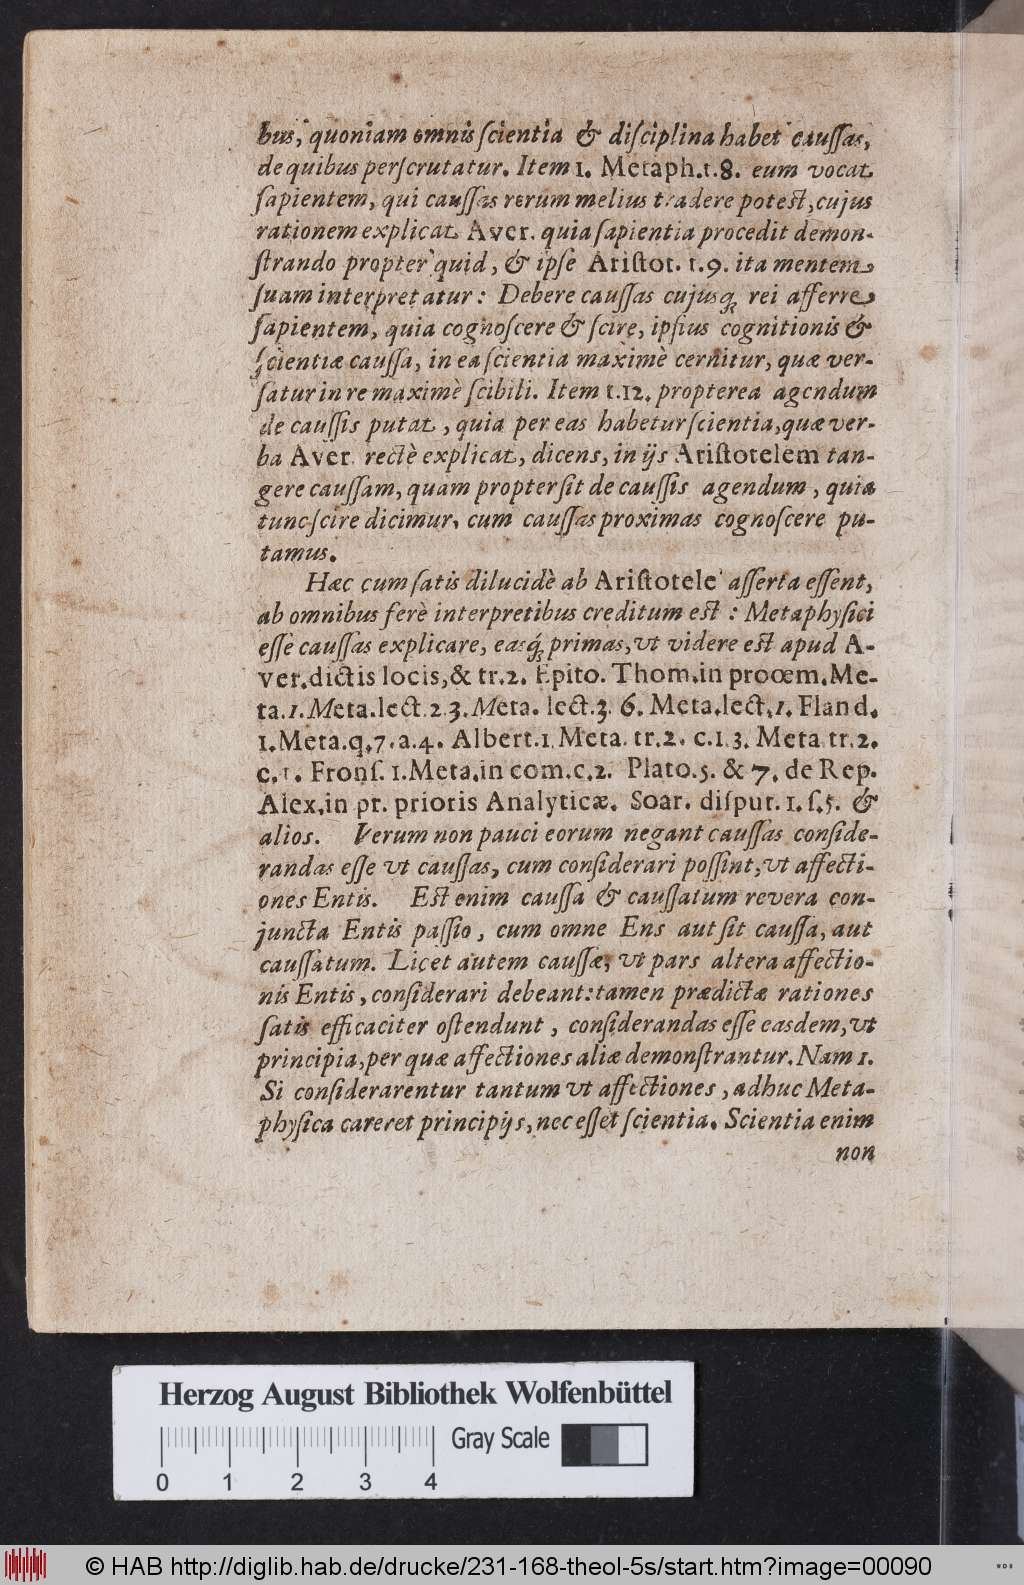 bus, quoniam omnis ſcientia & diſciplina habet cauſſas,
de quibus perſcrutatur. Item 1. Metaph.t.8. eum vocat
ſapientem, qui cauſſas rerum melius tradere poteſt, cujus
rationem explicat Aver. quia ſapientia procedit demon-
ſtrando propter quid, & ipſe Ariſtot. t.9. ita mentem
ſuam interpretatur: Debere cauſſas cujusq; rei afferre
ſapientem, quia cognoſcere & ſcire, ipſius cognitionis &
ſcientiæ cauſſa, in ea ſcientia maximè cernitur, quæ ver-
ſatur in re maximè ſcibili. Item t.12. propterea agendum
de cauſſis putat, quia per eas habetur ſcientia, quæ ver-
ba Aver. rectè explicat, dicens, in ijs Ariſtotelem tan-
gere cauſſam, quam propter ſit de cauſſis agendum, quia
tunc ſcire dicimur, cum cauſſas proximas cognoſcere pu-
tamus.
Hæc cum ſatis dilucidè ab Ariſtotele aſſerta eſſent,
ab omnibus ferè interpretibus creditum eſt: Metaphyſici
eſſe cauſſas explicare, easq́; primas, ut videre eſt apud A-
ver. dictis locis, & tr.2. Epito. Thom. in prooem. Me-
ta.1. Meta.lect.2.3. Meta. lect.3. 6. Meta.lect.1. Fland.
1. Meta.q.7.a.4. Albert.1 Meta. tr.2. c.1.3. Meta tr.2.
c.1. Fronſ. 1. Meta.in com.c.2. Plato.5. & 7. de Rep.
Alex.in pr. prioris Analyticæ. Soar. diſput. 1. ſ.5. &
alios. Verum non pauci eorum negant cauſſas conſide-
randas eſſe ut cauſſas, cum conſiderari poſſint, ut affecti-
ones Entis. Eſt enim cauſſa & cauſſatum revera con-
juncta Entis paſſio, cum omne Ens aut ſit cauſſa, aut
cauſſatum. Licet autem cauſſæ, ut pars altera affectio-
nis Entis, conſiderari debeant: tamen prædictæ rationes
ſatis efficaciter oſtendunt, conſiderandas eſſe easdem, ut
principia, per quæ affectiones aliæ demonſtrantur. Nam 1.
Si conſiderarentur tantum ut affectiones, adhuc Meta-
phyſica careret principijs, nec eſſet ſcientia. Scientia enim
non
Herzog August Bibliothek Wolfenbüttel
Gray Scale
0 1 2 3 4
© HAB http://diglib.hab.de/drucke/231-168-theol-5s/start.htm?image=00090